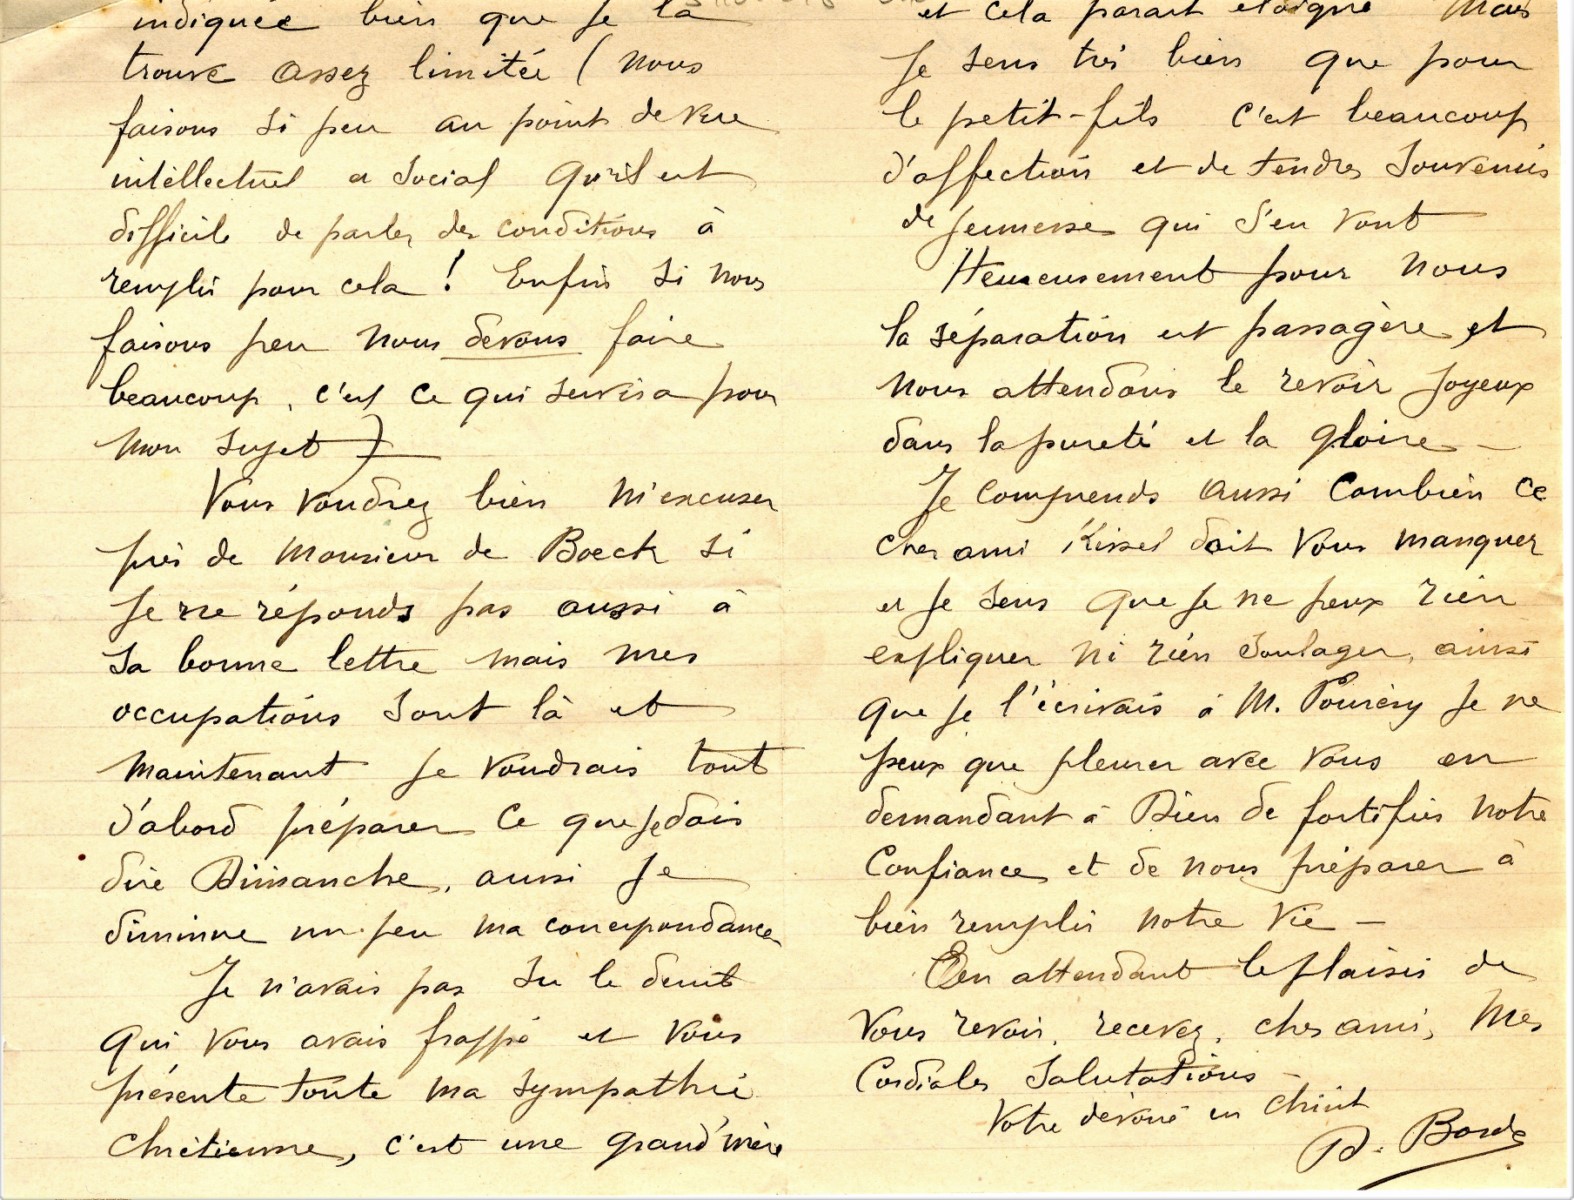 indiquée bien que je la
trouve assez limitée (nous
faisons si peu au point de vue
intellectuel et social qu'il est
difficile de parler des conditions à
remplir pour cela ! Enfin si nous
faisons peu nous devons faire
beaucoup, c'est ce qui servira pour
mon sujet)
Vous voudrez bien m'excuser
près de Monsieur de Boeck si
je ne réponds pas aussi à
sa bonne lettre mais mes
occupations sont là et
maintenant je voudrais tout
d'abord préparer ce que je dois
dire Dimanche, aussi je
diminue un peu ma correspondance
Je n'avais pas su le deuil
qui vous avais frappé et vous
présente toute ma sympathie
chrétienne, c'est une grand'mère
et cela parait éloigné Mais
je sens très bien que pour
le petit-fils c'est beaucoup
d'affection et de tendres souvenirs
de jeunesse qui s'en vont
Heureusement pour nous
la séparation est passagère et
nous attendons le revoir joyeux
dans la pureté et la gloire -
Je comprends aussi combien ce
cher ami Kissel doit vous manquer
et je sens que je ne peux rien
expliquer ni rien soulager, ainsi
que je l'écrivais à M. je ne
peux que pleurer avec vous en
demandant à Dieu de fortifier notre
confiance et de nous préparer à
bien remplir notre vie -
En attendant le plaisir de
vous revoir, recevez, cher ami, mes
Cordiales Salutations -
Votre dévoué en Christ
D. Borde